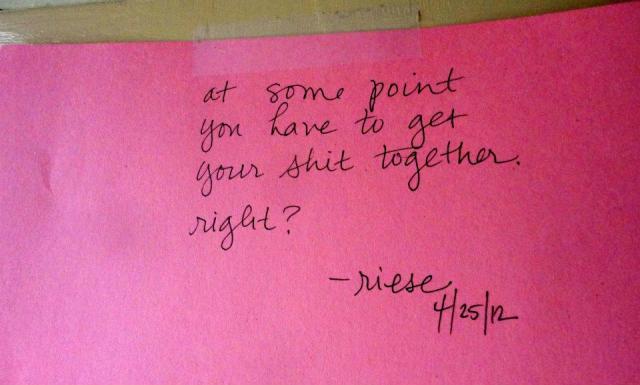 at some point
you have to get
your shit together.
right?
-riese
4/25/12